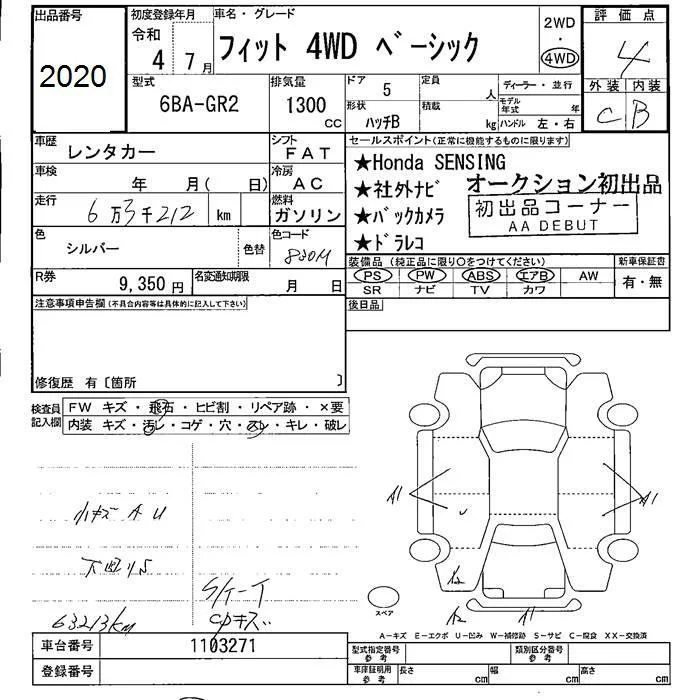 出品番号
2020
初度登録年月
令和
4 7月
車名・グレード
フィット 4WD ベーシック
2WD
・
4WD
評価点
4
外装 内装
C B
型式
6BA-GR2
排気量
1300
cc
ドア
5
定員
人
形状
ハッチB
積載
kg
ディーラー・並行
モデル年式
年
ハンドル 左・右
車歴
レンタカー
シフト
FAT
車検
年 月( 日)
冷房
AC
走行
6万3千212
km
燃料
ガソリン
色
シルバー
色替
色コード
830M
R券
9,350円
名変通知期限
月 日
セールスポイント(正常に機能するものに限ります)
★Honda SENSING
★社外ナビ
★バックカメラ
★ドラレコ
オークション初出品
初出品コーナー
AA DEBUT
装備品(純正品に限り○をつけてください)
PS PW ABS エアB AW
SR ナビ TV カワ
新車保証書
有・無
後日品
注意事項申告欄(不具合内容等は具体的に記入して下さい)
修復歴 有〔箇所 〕
検査員
記入欄
FW キズ・飛石・ヒビ割・リペア跡・×要
内装 キズ・汚レ・コゲ・穴・スレ・キレ・破レ
小キズ A U
下回りS
63213km
S/ケート
CPキズ
A1
A1
A2
A2
A1
スペア
A-キズ E-エクボ U-凹み W-補修跡 S-サビ C-腐食 XX-交換済
車台番号
1103271
登録番号
型式指定番号
参考
類別区分番号
参考
車庫証明用
参考
長さ
cm
幅
cm
高さ
cm